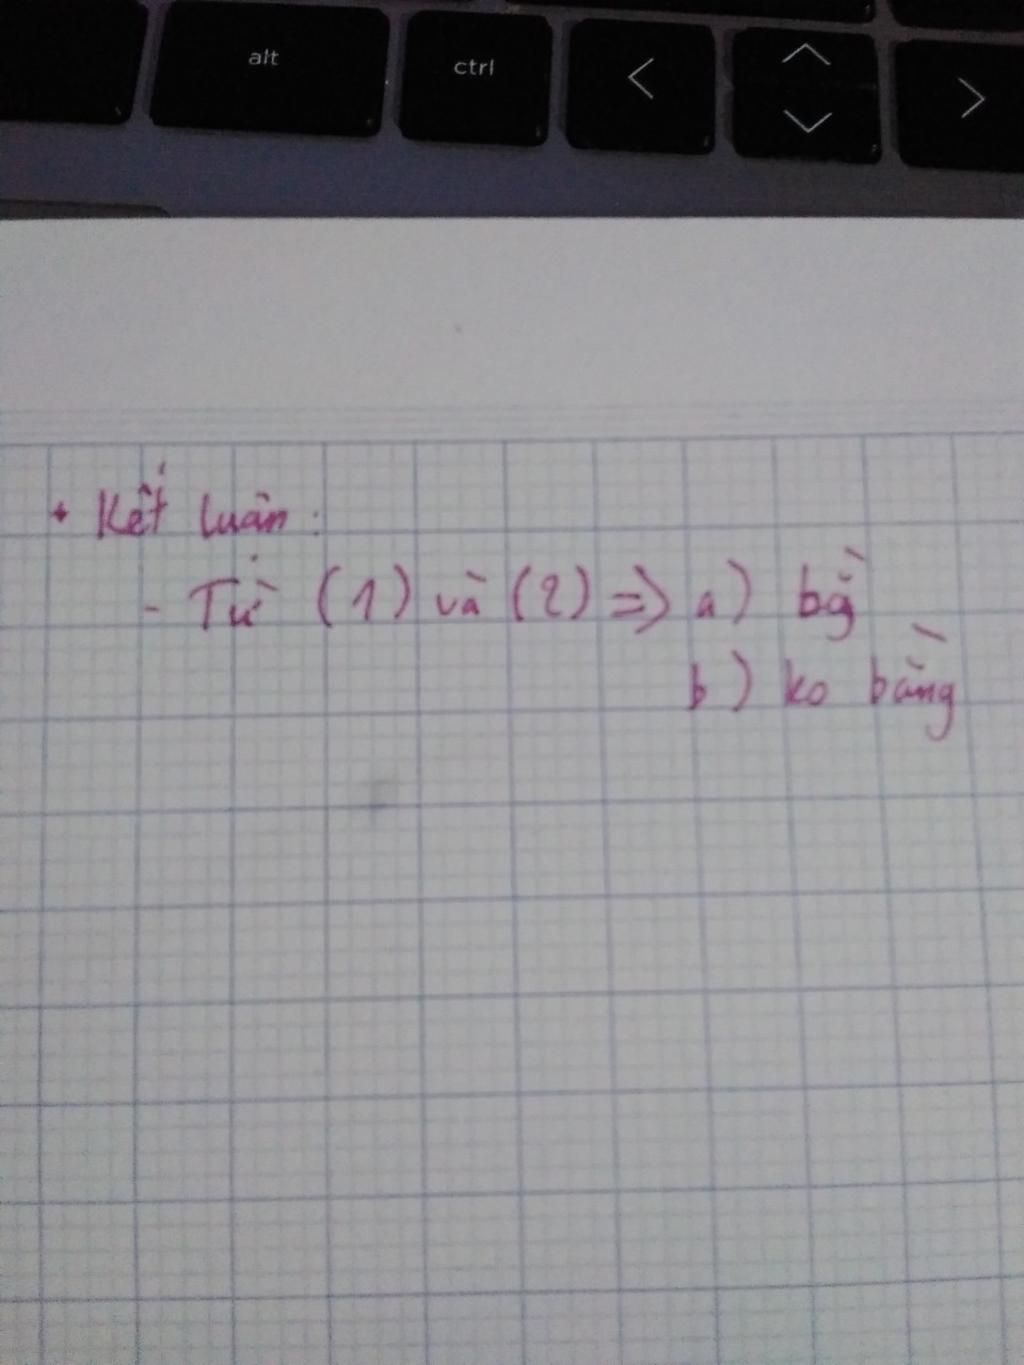 alt ctrl < ^ >
+ Kết luận:
- Từ (1) và (2) => a) bg̀
b) ko bằng